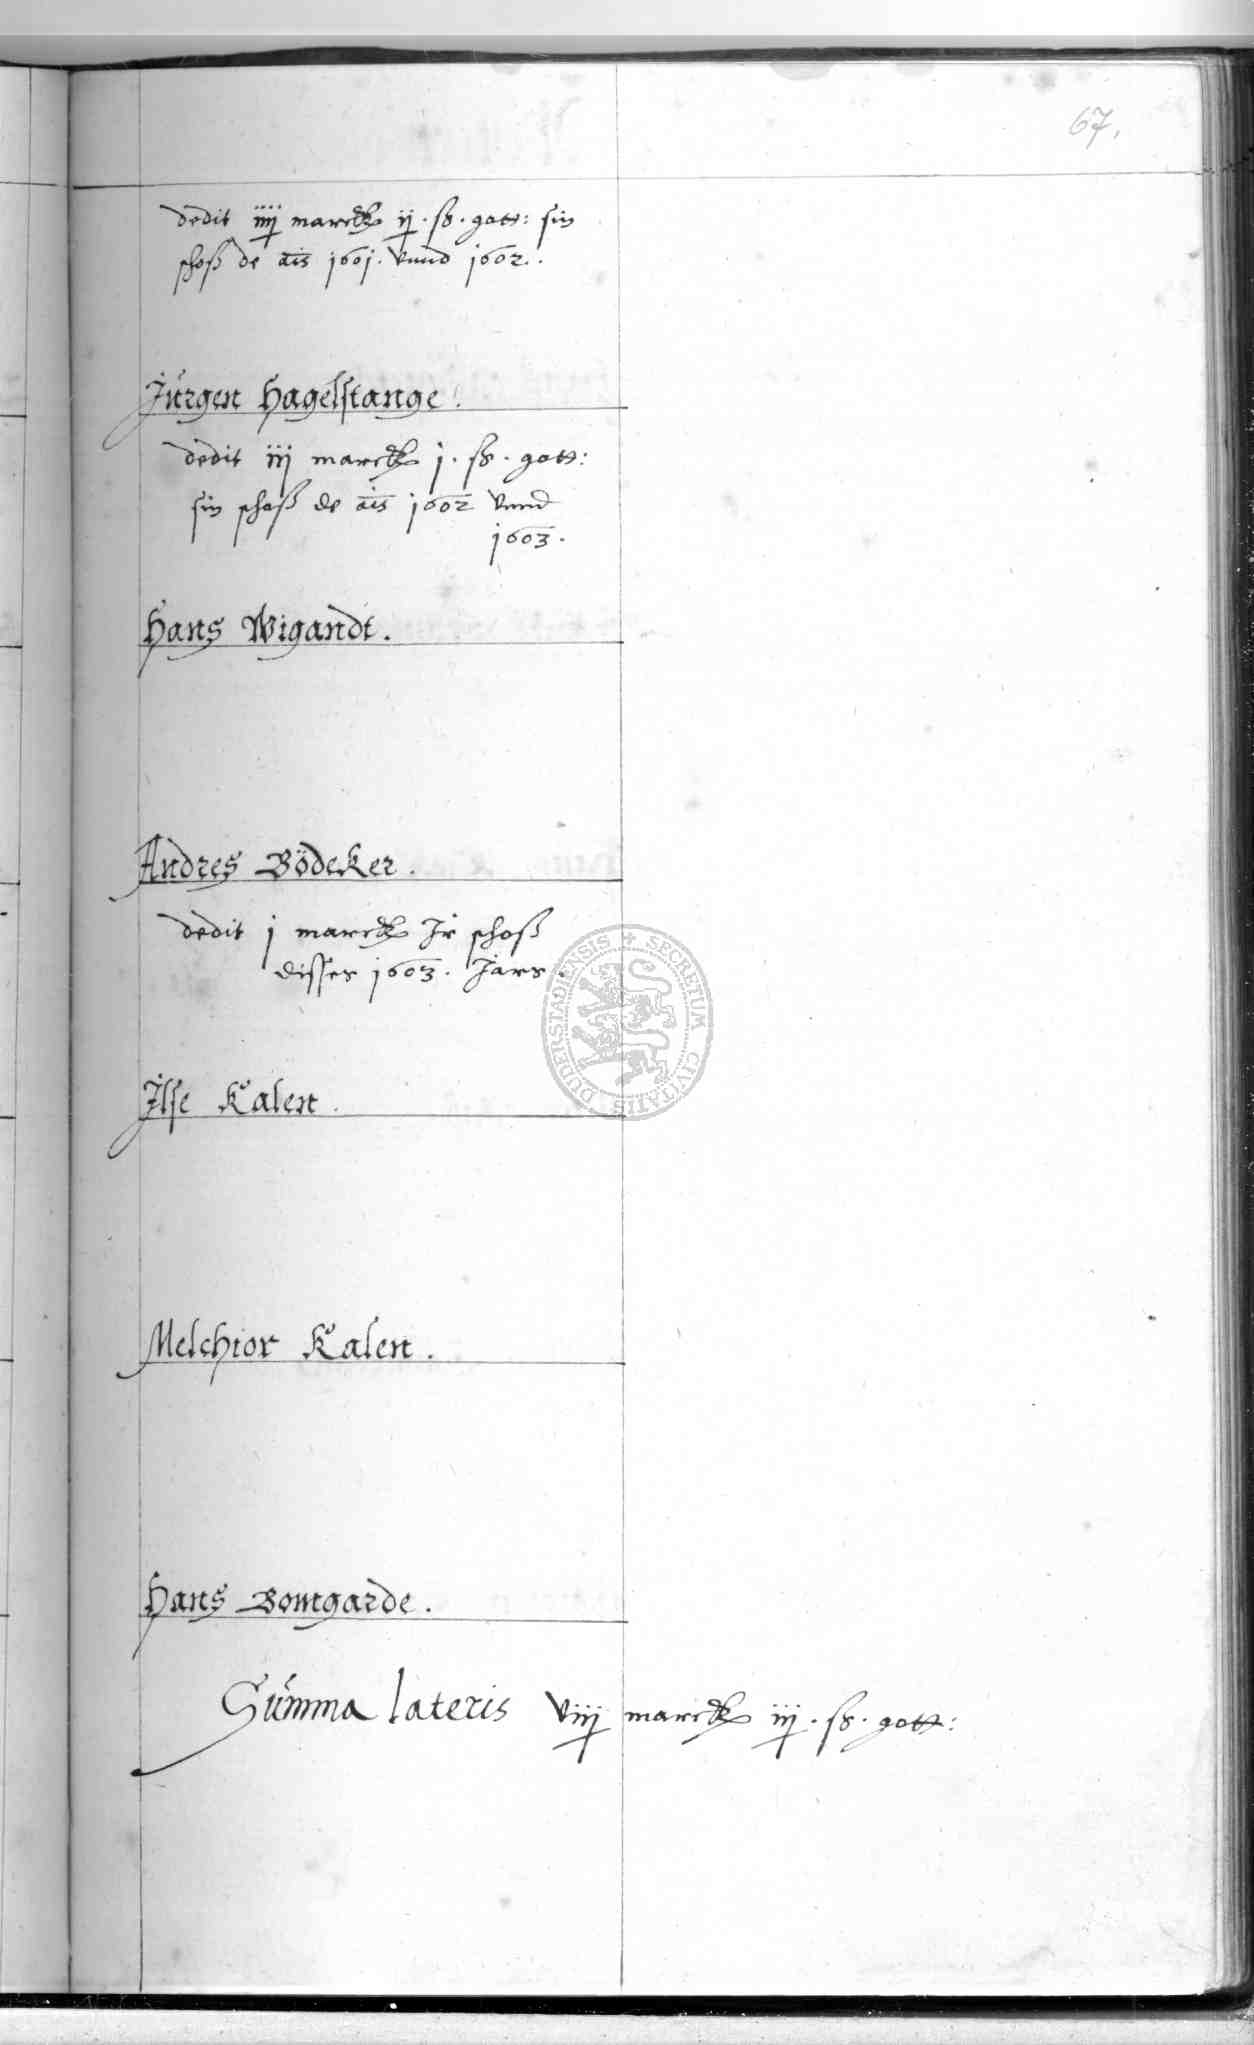 67.
dedit iiij marck ij . ß . gott: sin
schoß de ais 1601. vnnd 1602.
Jürgen Hagelstange.
dedit iij marck j . ß . gott:
sin schoß de ais 1602 vnnd
1603.
Hans Wigandt.
Andres Bödeker.
dedit j marck Ir schoß
disses 1603. Jars.
Ilse Kalen.
Melchior Kalen.
Hans Bomgarde.
Summa lateris viij marck iij . ß . gott:
SECRETUM CIVITATIS DUDERSTADIENSIS